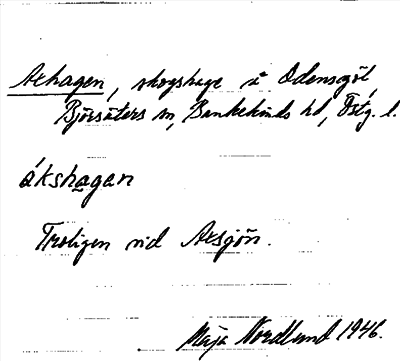 Axhagen, skogshage i Odensgöl
Björsäters sn, Bankekinds hd, Östg. l.
ákshagan
Troligen vid Axsjön.
Maja Nordlund 1946.